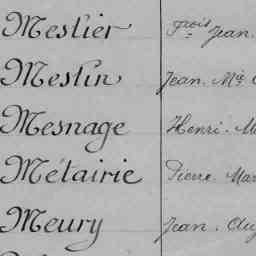 Mestier Frois Jean.
Mestin Jean. Mie
Mesnage Henri. M
Métairie Pierre. Mar
Meury Jean. Aug